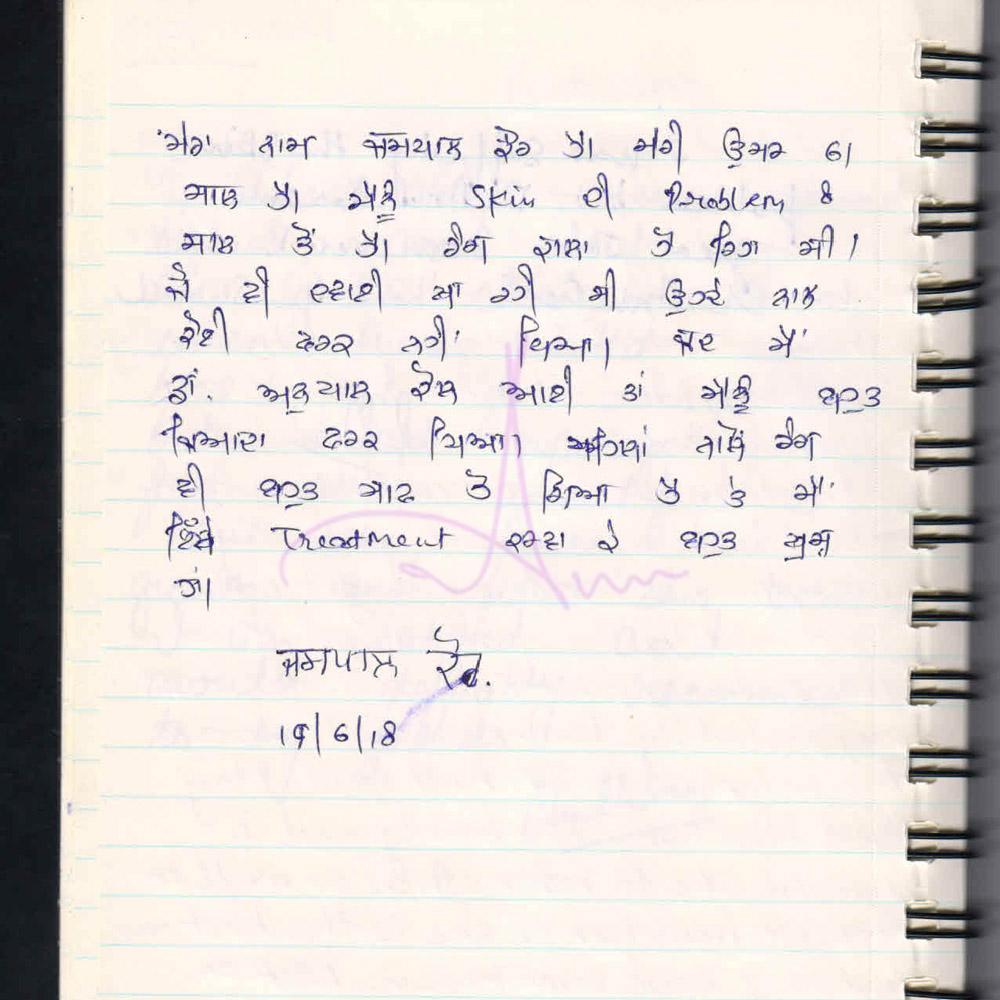 ਮੇਰਾ ਨਾਮ ਜਸਪਾਲ ਕੌਰ ਹੈ। ਮੇਰੀ ਉਮਰ 61
ਸਾਲ ਹੈ। ਮੈਨੂੰ Skin ਦੀ Problem 8
ਸਾਲ ਤੋਂ ਹੈ। ਰੰਗ ਕਾਲਾ ਹੋ ਗਿਆ ਸੀ।
ਜੋ ਵੀ ਦਵਾਈ ਖਾ ਰਹੀ ਸੀ ਉਹਦੇ ਨਾਲ
ਕੋਈ ਫਰਕ ਨਹੀਂ ਪਿਆ। ਜਦ ਮੈਂ
ਡਾ. ਕੋਲ ਆਈ ਤਾਂ ਮੈਨੂੰ ਬਹੁਤ
ਜ਼ਿਆਦਾ ਫਰਕ ਪਿਆ। ਪਹਿਲਾਂ ਨਾਲੋਂ ਰੰਗ
ਵੀ ਬਹੁਤ ਸਾਫ ਹੋ ਗਿਆ ਹੈ ਤੇ ਮੈਂ
ਇੱਥੇ Treatment ਕਰਵਾ ਕੇ ਬਹੁਤ ਖੁਸ਼
ਹਾਂ।
ਜਸਪਾਲ ਕੌਰ.
19/6/18